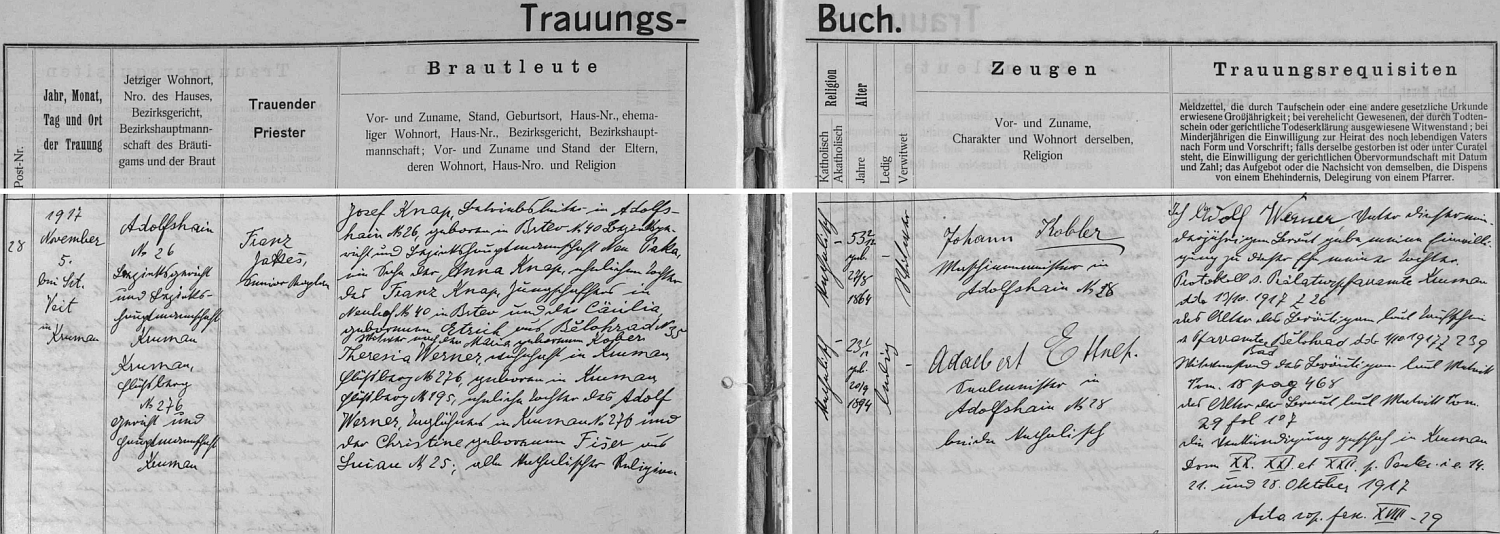 Trauungs-
Buch.
Post-Nr.
Jahr, Monat,
Tag und Ort
der Trauung
Jetziger Wohnort,
Nro. des Hauses,
Bezirksgericht,
Bezirkshauptmann-
schaft des Bräuti-
gams und der Braut
Trauender
Priester
Brautleute
Vor- und Zuname, Stand, Geburtsort, Haus-Nr., ehema-
liger Wohnort, Haus-Nr., Bezirksgericht, Bezirkshaupt-
mannschaft; Vor- und Zuname und Stand der Eltern,
deren Wohnort, Haus-Nro. und Religion
Religion
Katholisch
Akatholisch
Alter
Jahre
Ledig
Verwitwet
Zeugen
Vor- und Zuname,
Charakter und Wohnort derselben,
Religion
Trauungsrequisiten
Meldzettel, die durch Taufschein oder eine andere gesetzliche Urkunde
erwiesene Großjährigkeit; bei verehelicht Gewesenen, der durch Todten-
schein oder gerichtliche Todeserklärung ausgewiesene Witwenstand; bei
Minderjährigen die Einwilligung zur Heirat des noch lebendigen Vaters
nach Form und Vorschrift; falls derselbe gestorben ist oder unter Curatel
steht, die Einwilligung der gerichtlichen Obervormundschaft mit Datum
und Zahl; das Aufgebot oder die Nachsicht von demselben, die Dispens
von einem Ehehindernis, Delegirung von einem Pfarrer.
28
1917
November
5.
bei Sct.
Veit
in
Kruman
Adolfshain
№ 26
Bezirksgericht
und Bezirks-
hauptmannschaft
Kruman
Kruman,
Flößberg
№ 276
Gericht und
Hauptmannschaft
Kruman
Franz
Josef Knap, Betriebsleiter in Adolfs-
hain № 26, geboren in Brtev № 40 Bezirksge-
richt und Bezirkshauptmannschaft Neu Paka,
ein Sohn der Anna Knap, ehelichen Tochter
des Franz Knap, in
№ 40 in Brtev und der Cäcilia
geborenen aus Bělohrad № 35
Witwer nach der Maria geborenen Kober
Theresia Werner, wohnhaft in Kruman
Flößberg № 276, geboren in Kruman
Flößberg № 195, eheliche Tochter des Adolf
Werner, in Kruman № 276 und
der Christine geborenen Fišer aus
№ 25; alle katholischer Religion
katholisch
53
geb.
1864
Witwer
katholisch
23
geb.
20/9
1894
ledig
Johann Kobler
Maschinenmeister in
Adolfshain № 28
Adalbert
Saalmeister in
Adolfshain № 28
beide katholisch
Ich Adolf Werner Vater dieser min-
derjährigen Braut gebe meine Einwilli-
gung zu dieser Ehe meiner Tochter.
Protokoll d. Prälaturpfarramte Kruman
ddo 13/10. 1917 Z 26
das Alter des Bräutigam laut Taufschein
d Pfarramte Bad Bělohrad ddo 4/10 1917 Z 239
Witwenstand des Bräutigam laut Matrik
Tom. 18 pag 468
das Alter der Braut laut Matrik Tom.
29 fol 107
die Verkündigung geschah in Kruman
Dom XX. XXI. et XXII. p. Pent. i. e. 14.
21. und 28. Oktober 1917